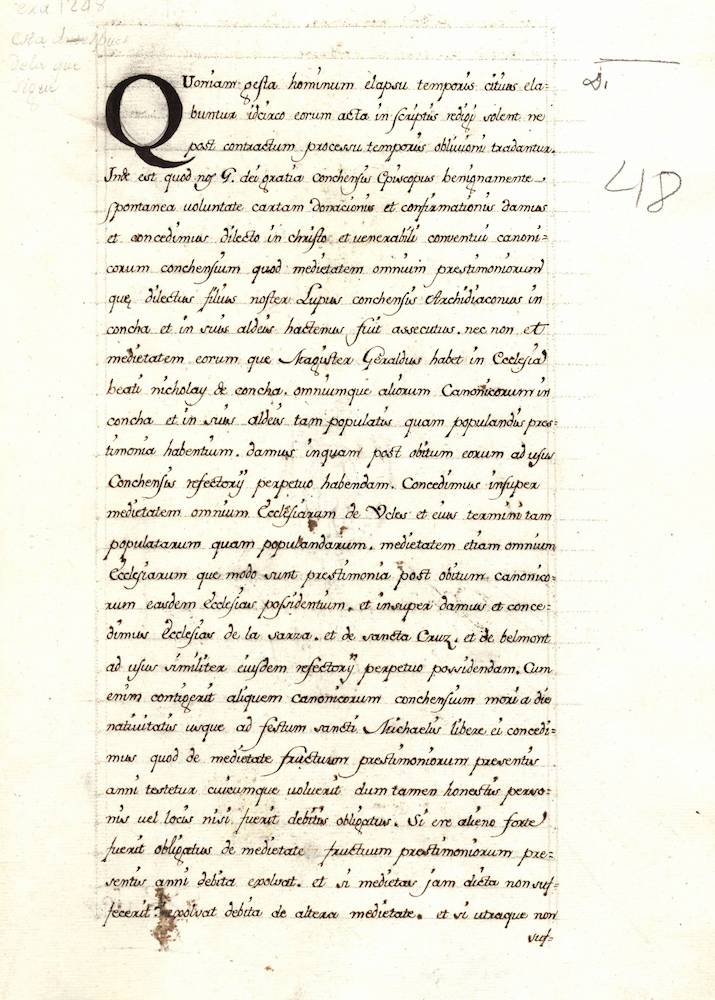 era 1248
esta despues
dela que
sigue
D.
48
QUoniam gesta hominum elapsu temporis citius ela=
buntur idcirco eorum acta in scriptis redigi solent ne
post contractum processu temporis oblivioni tradantur.
Inde est quod nos G. dei gratia conchensis Episcopus benignamente
spontanea voluntate cartam donacionis et confirmationis damus
et concedimus dilecto in christo et venerabili conventui canoni=
corum conchensium quod medietatem omnium prestimoniorum
quę dilectus filius noster Lupus conchensis Archidiaconus in
concha et in suis aldeis hactenus fuit assecutus. nec non et
medietatem eorum que Magister Geraldus habet in Ecclesia
beati nicholay de concha. omniumque aliorum Canonicorum in
concha et in suis aldeis tam populatis quam populandis pres=
timonia habentium. damus inquam post obitum eorum ad usus
Conchensis refectorij perpetuo habendam. Concedimus insuper
medietatem omnium Ecclesiarum de Ucles et eius termini tam
populatarum quam populandarum. medietatem etiam omnium
Ecclesiarum que modo sunt prestimonia post obitum canonico=
rum easdem Ecclesias possidentium. et insuper damus et conce=
dimus Ecclesias de la sarza. et de sancta Cruz. et de belmont
ad usus similiter eiusdem refectorij perpetuo possidendam. Cum
enim contigerit aliquem canonicorum conchensium mori a die
nativitatis usque ad festum sancti Michaelis libere ei concedi=
mus quod de medietate fructuum prestimoniorum presentis
anni testetur cuicumque voluerit dum tamen honestis perso=
nis vel locis nisi fuerit debitis obligatus. Si ere alieno forte
fuerit obligatus de medietate fructuum prestimoniorum pre=
sentis anni debita exolvat. et si medietas jam dicta non suf=
fecerit exolvat debita de altera medietate. et si utraque non
suf=